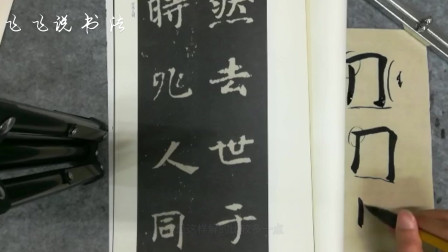 飞飞说书法
然去世于
时兆人同